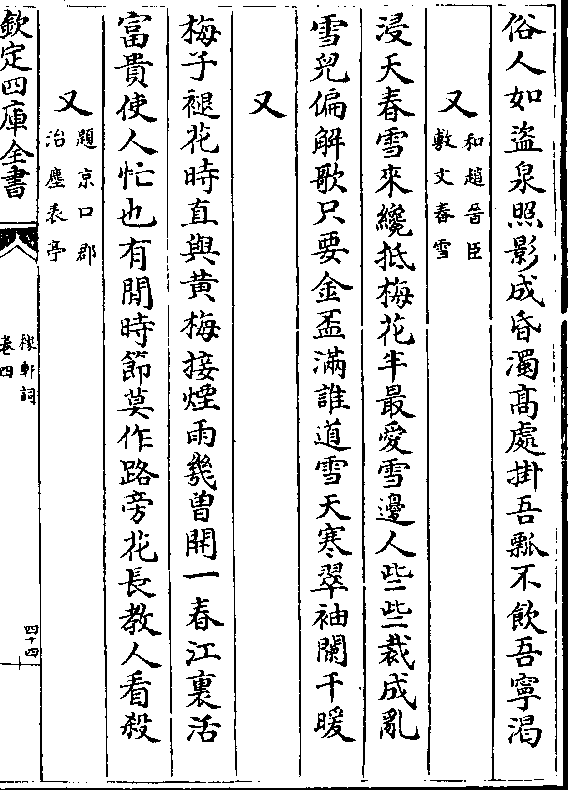 俗人如盜泉照影成昏濁高處掛吾瓢不飲吾寧渴
又
和趙晉臣
敷文春雪
浸天春雪來纔抵梅花半最愛雪邊人些些裁成亂
雪兒偏解歌只要金盃滿誰道雪天寒翠袖闌干暖
又
梅子褪花時直與黃梅接煙雨幾曽開一春江裏活
富貴使人忙也有閒時節莫作路旁花長教人看殺
又
題京口郡
治塵表亭
欽定四庫全書
稼軒詞
卷四
四十四